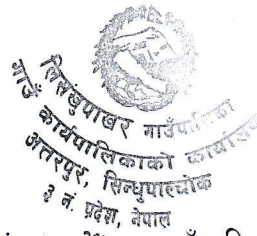 लिसंखुपाखर गाउँपालिका
गाउँ कार्यपालिकाको कार्यालय
अत्तरपुर, सिन्धुपाल्चोक
३ नं. प्रदेश, नेपाल